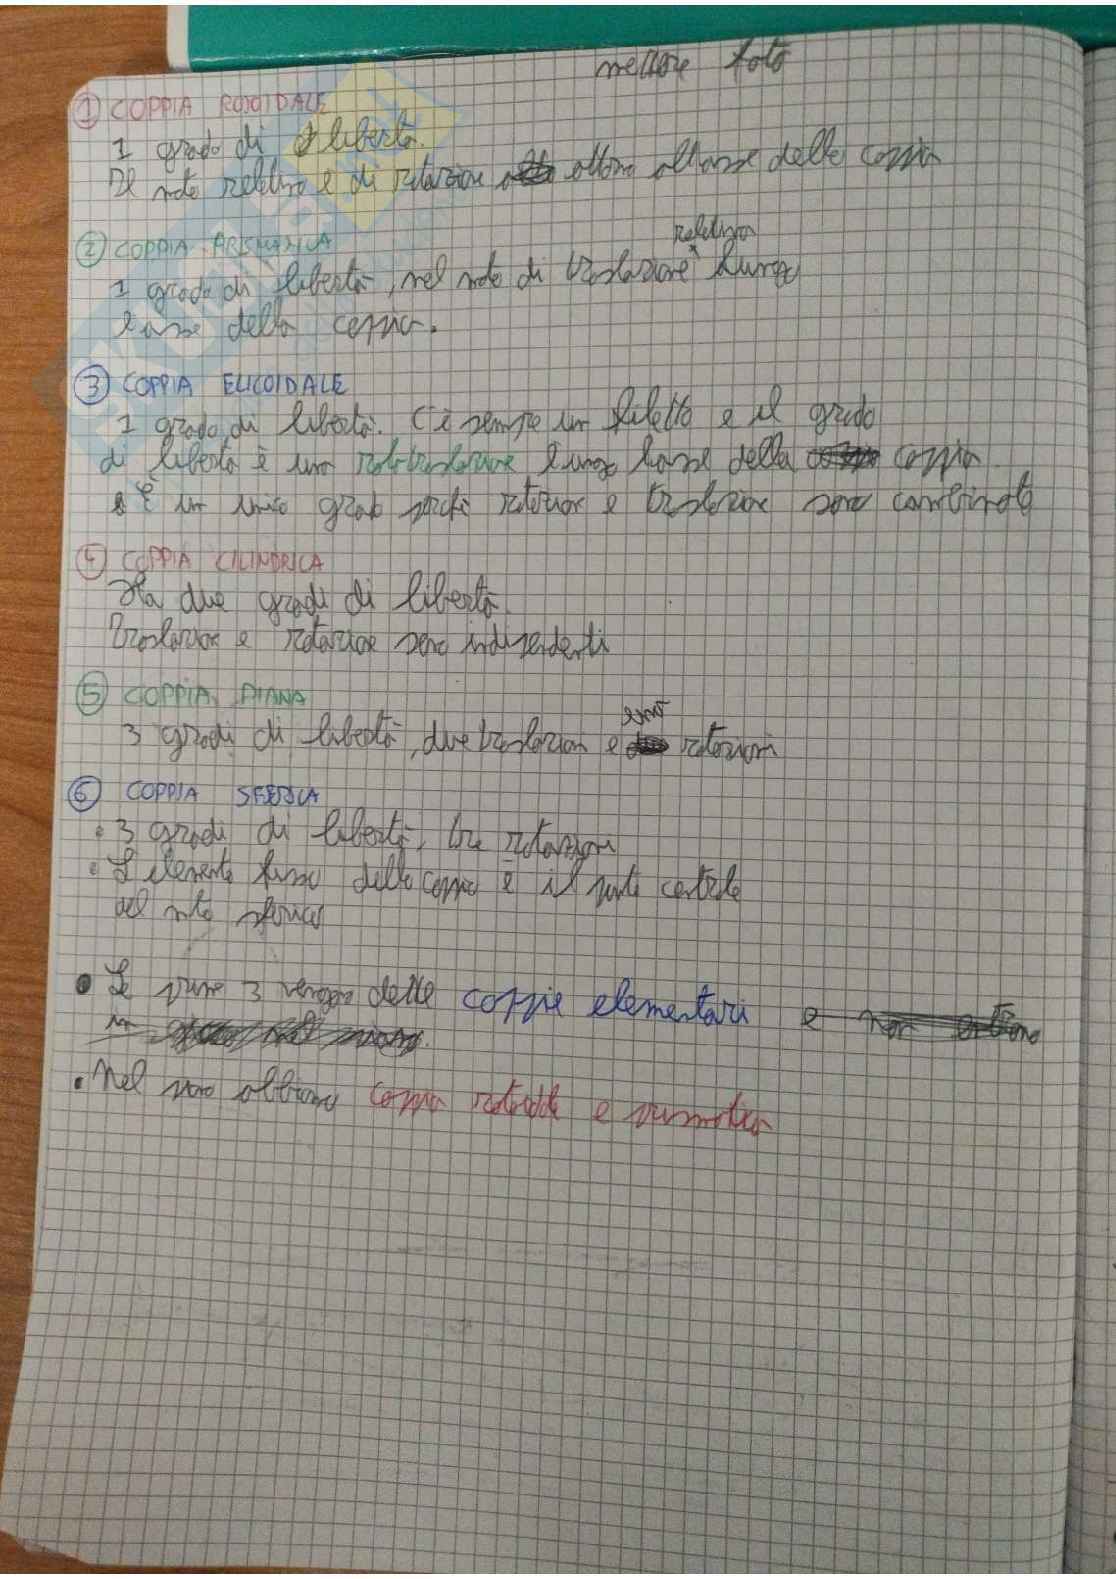 mettere foto
① COPPIA ROTOIDALE
1 grado di libertà.
Il moto relativo è di rotazione attorno all'asse della coppia
② COPPIA PRISMATICA
relativa
1 grado di libertà, nel moto di traslazione lungo
l'asse della coppia.
③ COPPIA ELICOIDALE
1 grado di libertà. C'è sempre un filetto e il grado
di libertà è una rototraslazione lungo l'asse della coppia
È un unico grado perché rotazione e traslazione sono combinate
④ COPPIA CILINDRICA
Ha due gradi di libertà.
Traslazione e rotazione sono indipendenti
⑤ COPPIA PIANA
una
3 gradi di libertà, due traslazioni e rotazioni
⑥ COPPIA SFERICA
• 3 gradi di libertà, tre rotazioni
• L'elemento fisso della coppia è il punto centrale
del moto sferico
• Le prime 3 vengono dette coppie elementari
• Nel piano abbiamo coppia rotoidale e prismatica